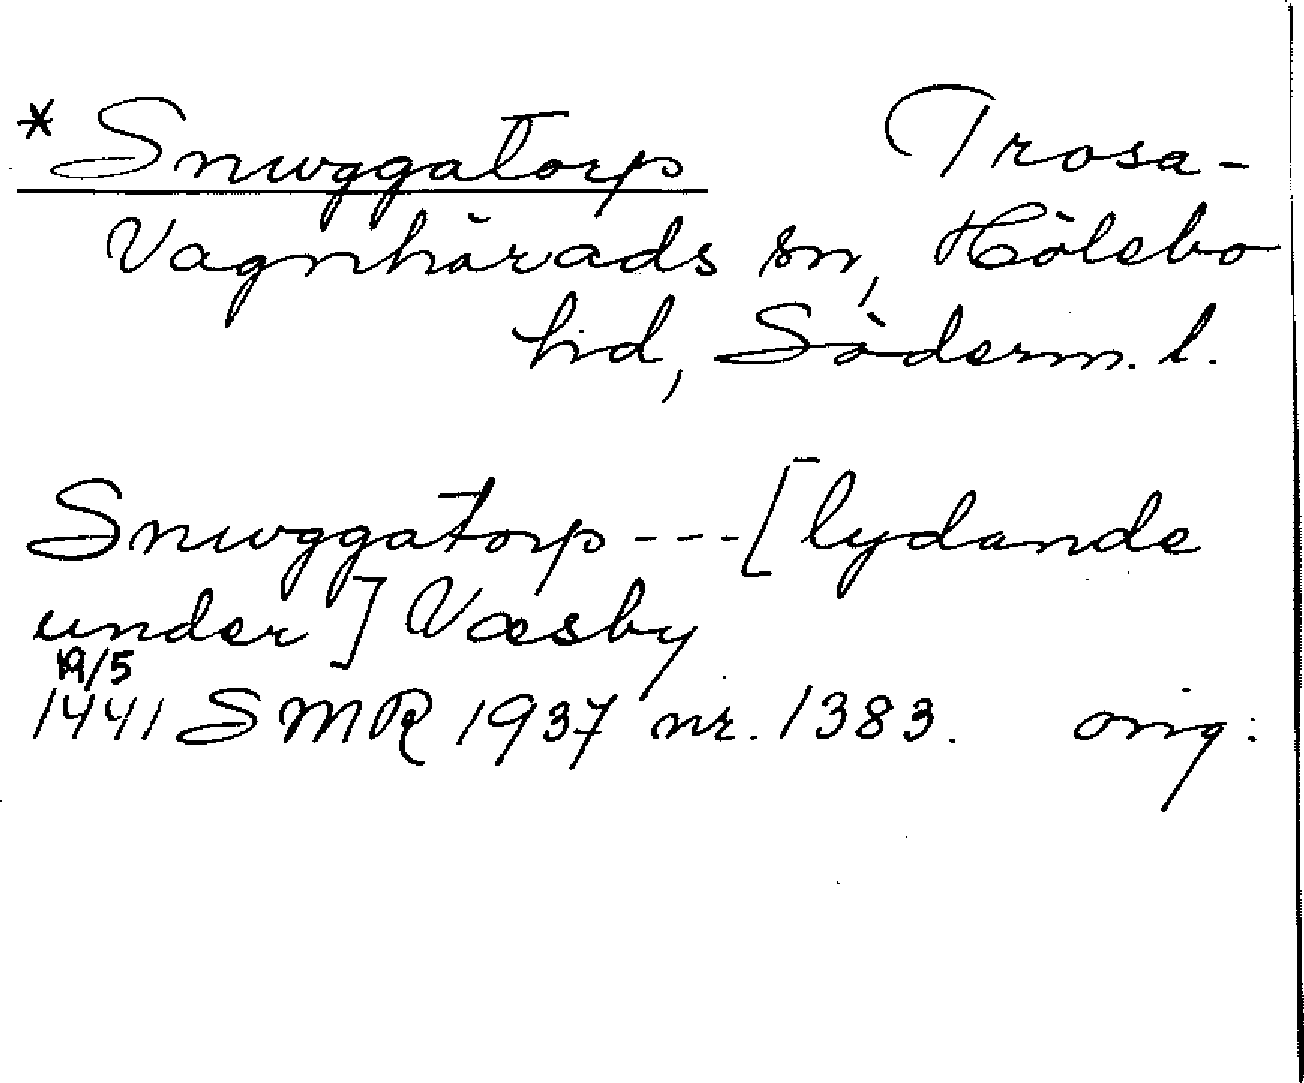 *Snwggatorp Trosa-
Vagnhärads sn, Hölebo
hd, Söderm. l.
Snwggatorp---[lydande
under] Væsby
19/5
1441 SMR 1937 nr. 1383. orig: